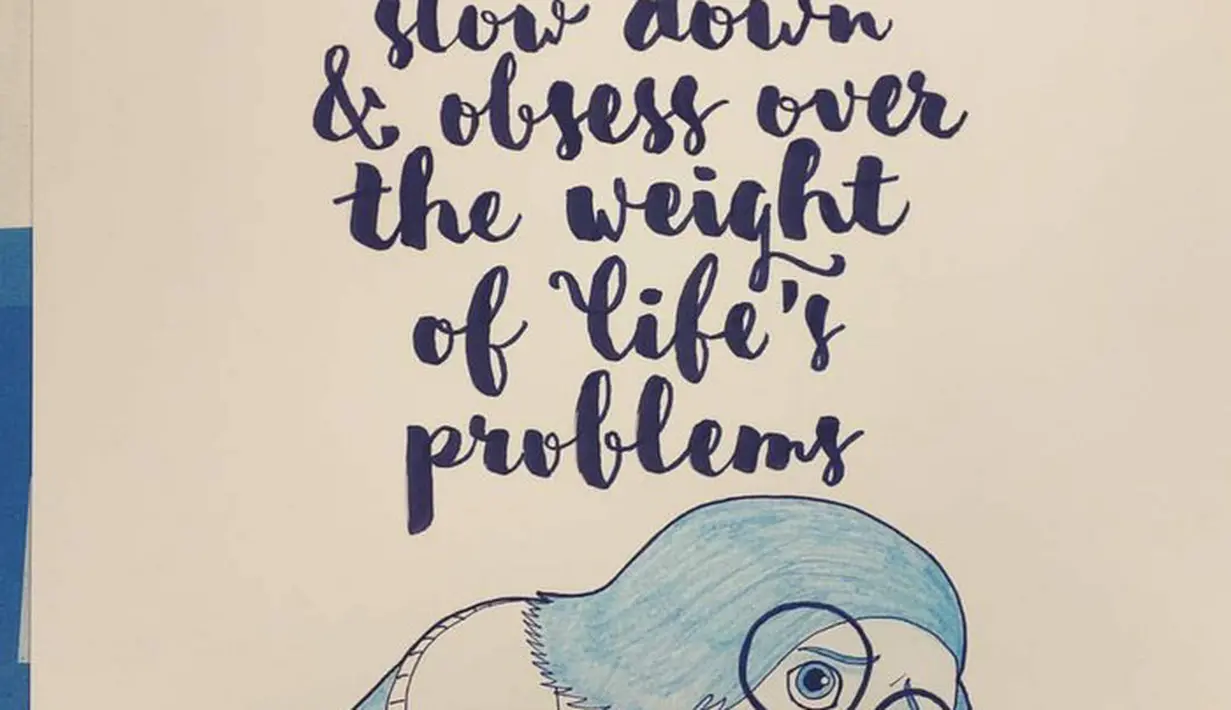 slow down
& obsess over
the weight
of life's
problems